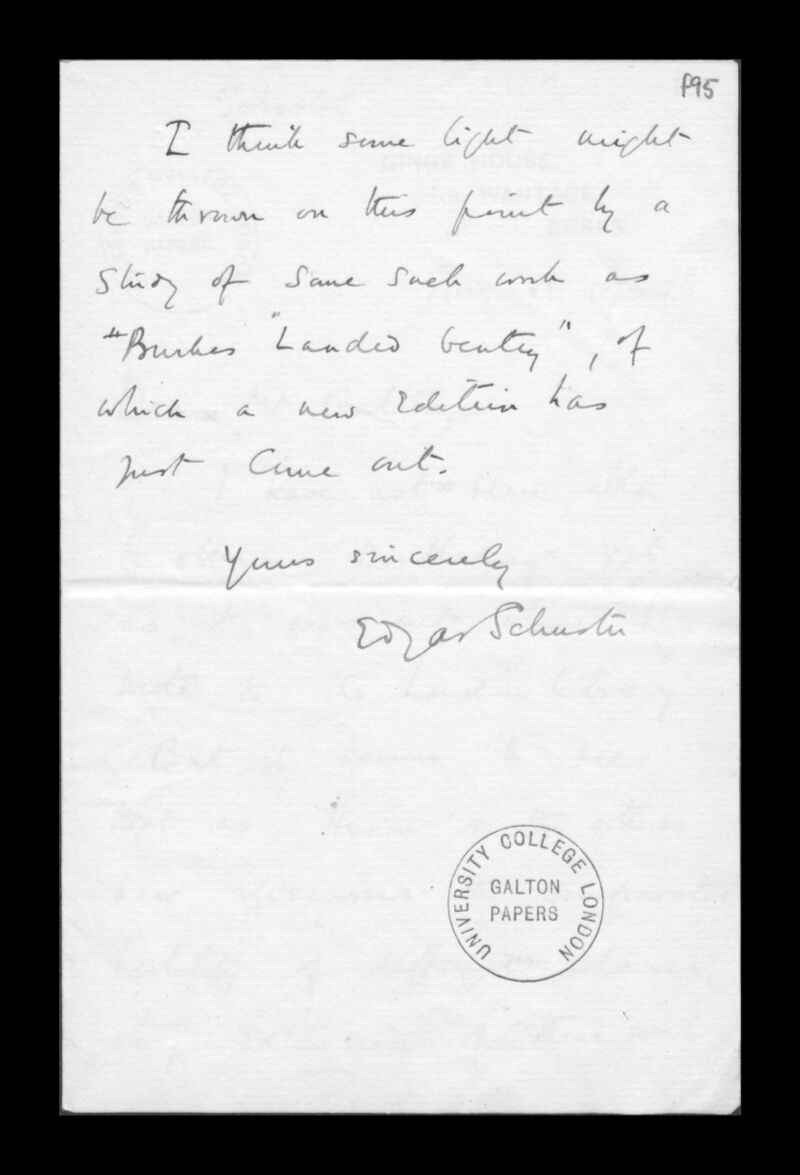 f95
I think some light might
be thrown on this point by a
study of some such work as
"Burkes "Landed Gentry", of
which a new Edition has
just come out.
Yours sincerely
Edgar Schuster
UNIVERSITY COLLEGE LONDON
GALTON
PAPERS